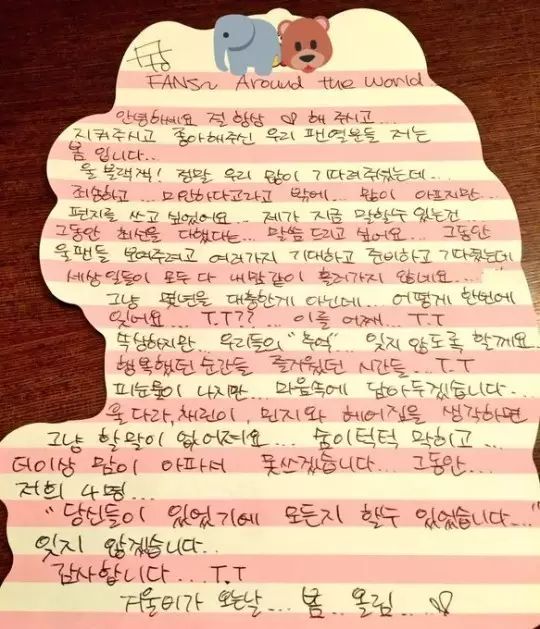 FANS~ Around the World
안녕하세요 절 항상 ♡ 해 주시고...
지켜주시고 좋아해주신 우리 팬열분들 저는
봄 입니다...
울 블랙잭! 정말 우리 많이 기다려주셨는데...
죄송하고... 미안하다고라고 밖에... 맘이 아프지만...
편지를 쓰고 싶었어요... 제가 지금 말할수 있는건...
그동안 최선을 다했다는... 말씀 드리고 싶어요... 그동안
울팬들 보여주려고 여러가지 기대하고 준비하고 기다렸는데
세상일들이 모두 다 내맘같이 흘러가지 않네요....
그냥 몇년을 대충한게 아닌데... 어떻게 한번에
잊어요... T.T?? ... 이를 어째... T.T
속상하지만... 우리들의 "추억"... 잊지 않도록 할께요
행복했던 순간들 즐거웠던 시간들... T.T
피눈물이 나지만... 마음속에 담아두겠습니다...
울 다라, 채린이, 민지와 헤어짐을 생각하면
그냥 할말이 없어져요... 숨이턱턱 막히고...
더이상 맘이 아파서 못쓰겠습니다... 그동안...
저희 4명...
"당신들이 있었기에 모든지 할수 있었습니다..."
잊지 않겠습니다..
감사합니다... T.T
겨울비가 오는날... 봄.. 올림... ♡